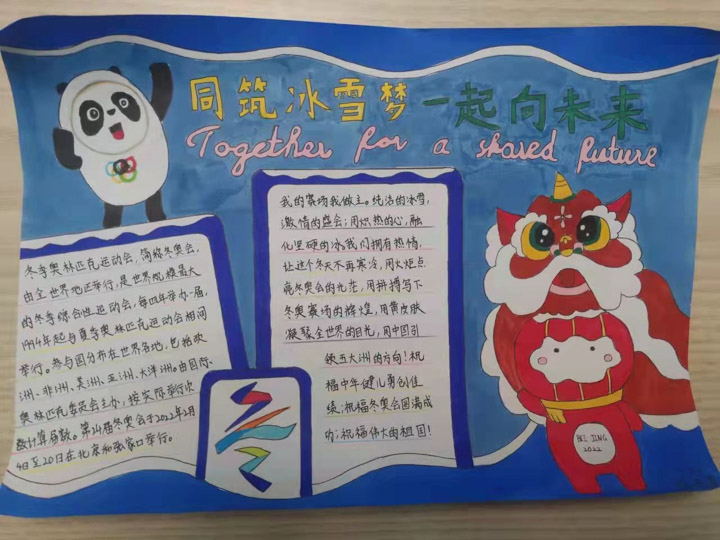 同筑冰雪梦 一起向未来
Together for a shared future
冬季奥林匹克运动会，简称冬奥会，
由全世界地区举行，是世界规模最大
的冬季综合性运动会，每四年举办一届，
1994年起与夏季奥林匹克运动会相间
举行。参与国分布在世界各地，包括欧
洲、非洲、美洲、亚洲、大洋洲。由国际
奥林匹克委员会主办，按实际举行次
数计算届数。第24届冬奥会于2022年2月
4日至20日在北京和张家口举行。
我的赛场我做主。纯洁的冰雪，
激情的盛会；用炽热的心，融
化坚硬的冰，我们拥有热情，
让这个冬天不再寒冷，用火炬点
亮冬奥会的光芒，用拼搏写下
冬奥赛场的辉煌，用黄皮肤
凝聚全世界的目光，用中国引
领五大洲的方向！祝
福中华健儿勇创佳
绩；祝福冬奥会圆满成
功；祝福伟大的祖国！
BEI JING
2022